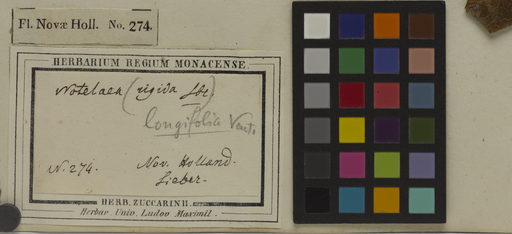 Fl. Novæ Holl. No. 274.
HERBARIUM REGIUM MONACENSE.
Notelaea (rigida Sbr)
longifolia Vent.
N. 274. Nov. Holland.
Sieber.
HERB. ZUCCARINII.
Herbar. Univ. Ludov. Maximil.